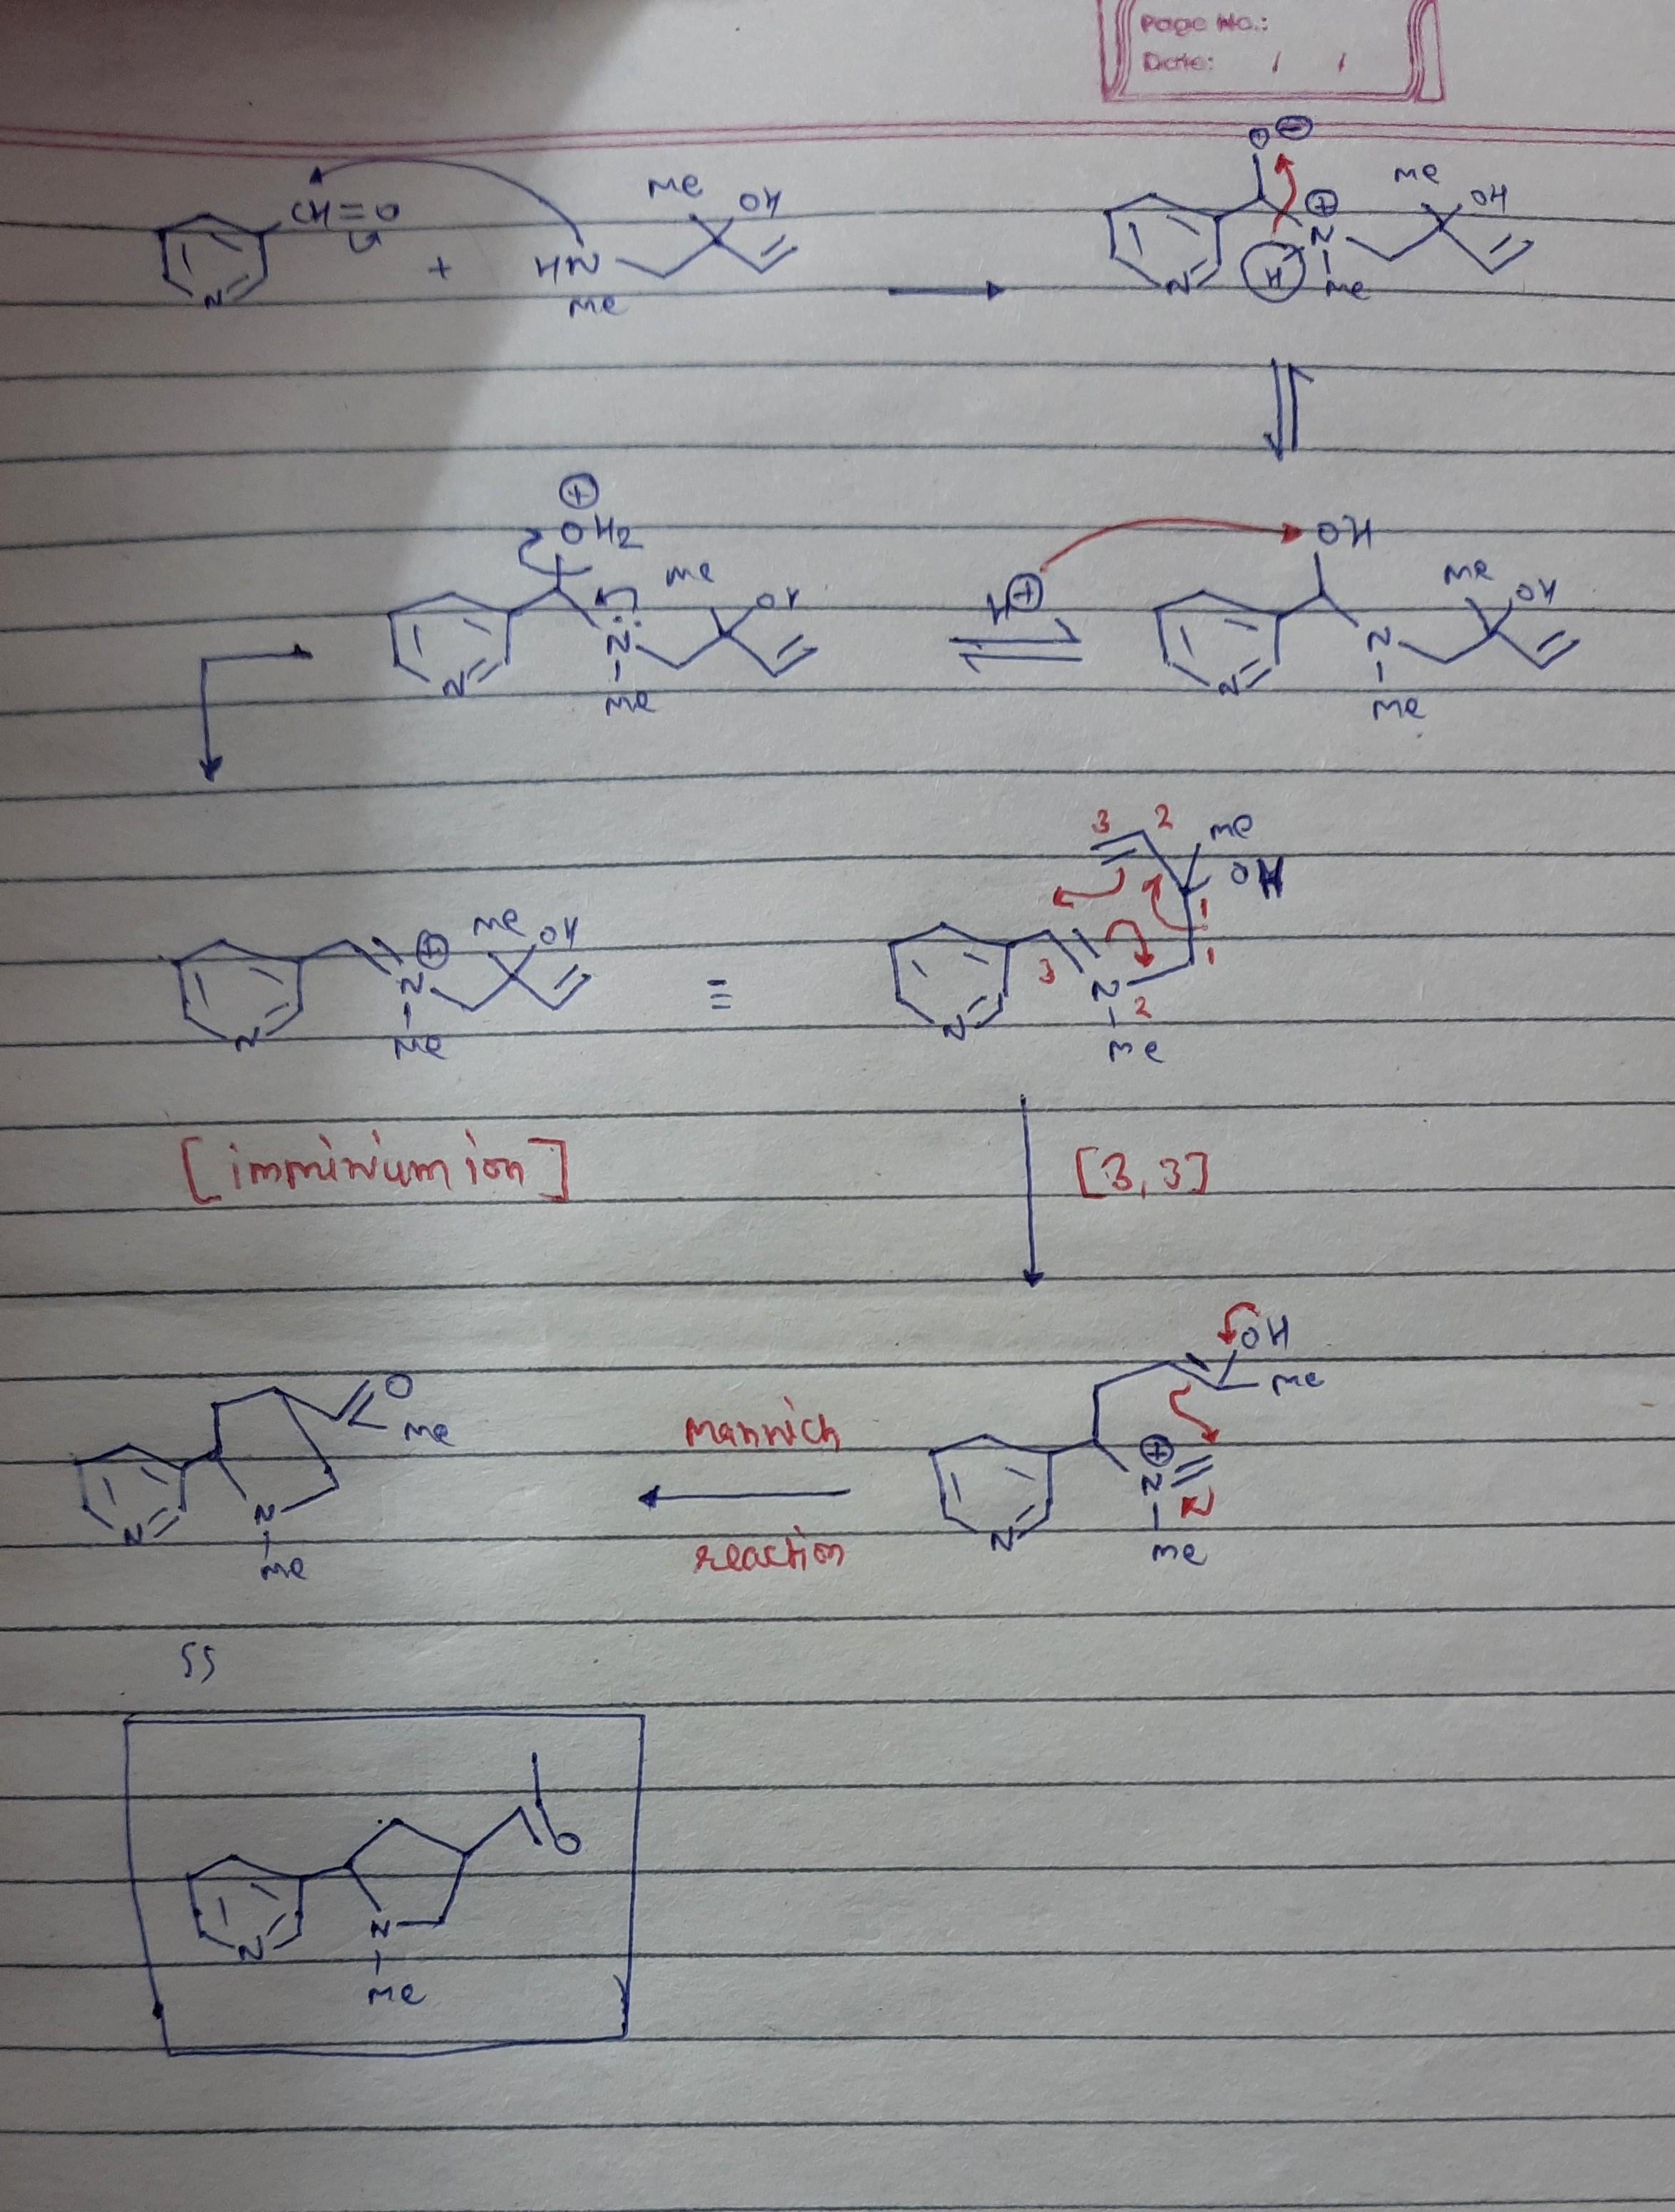 Page No.:
Date: / /
CH=O + HN Me Me OH N
O ⊖ ⊕ N H Me Me OH N
⊕ OH2 Me OH N Me N
H⊕
OH Me OH N Me N
⊕ Me OH N Me N
≡
3 2 Me OH 1 1 3 N 2 Me N
[imminium ion]
[3,3]
OH Me ⊕ N Me N
mannich
reaction
O Me N Me N
SS
O N Me N